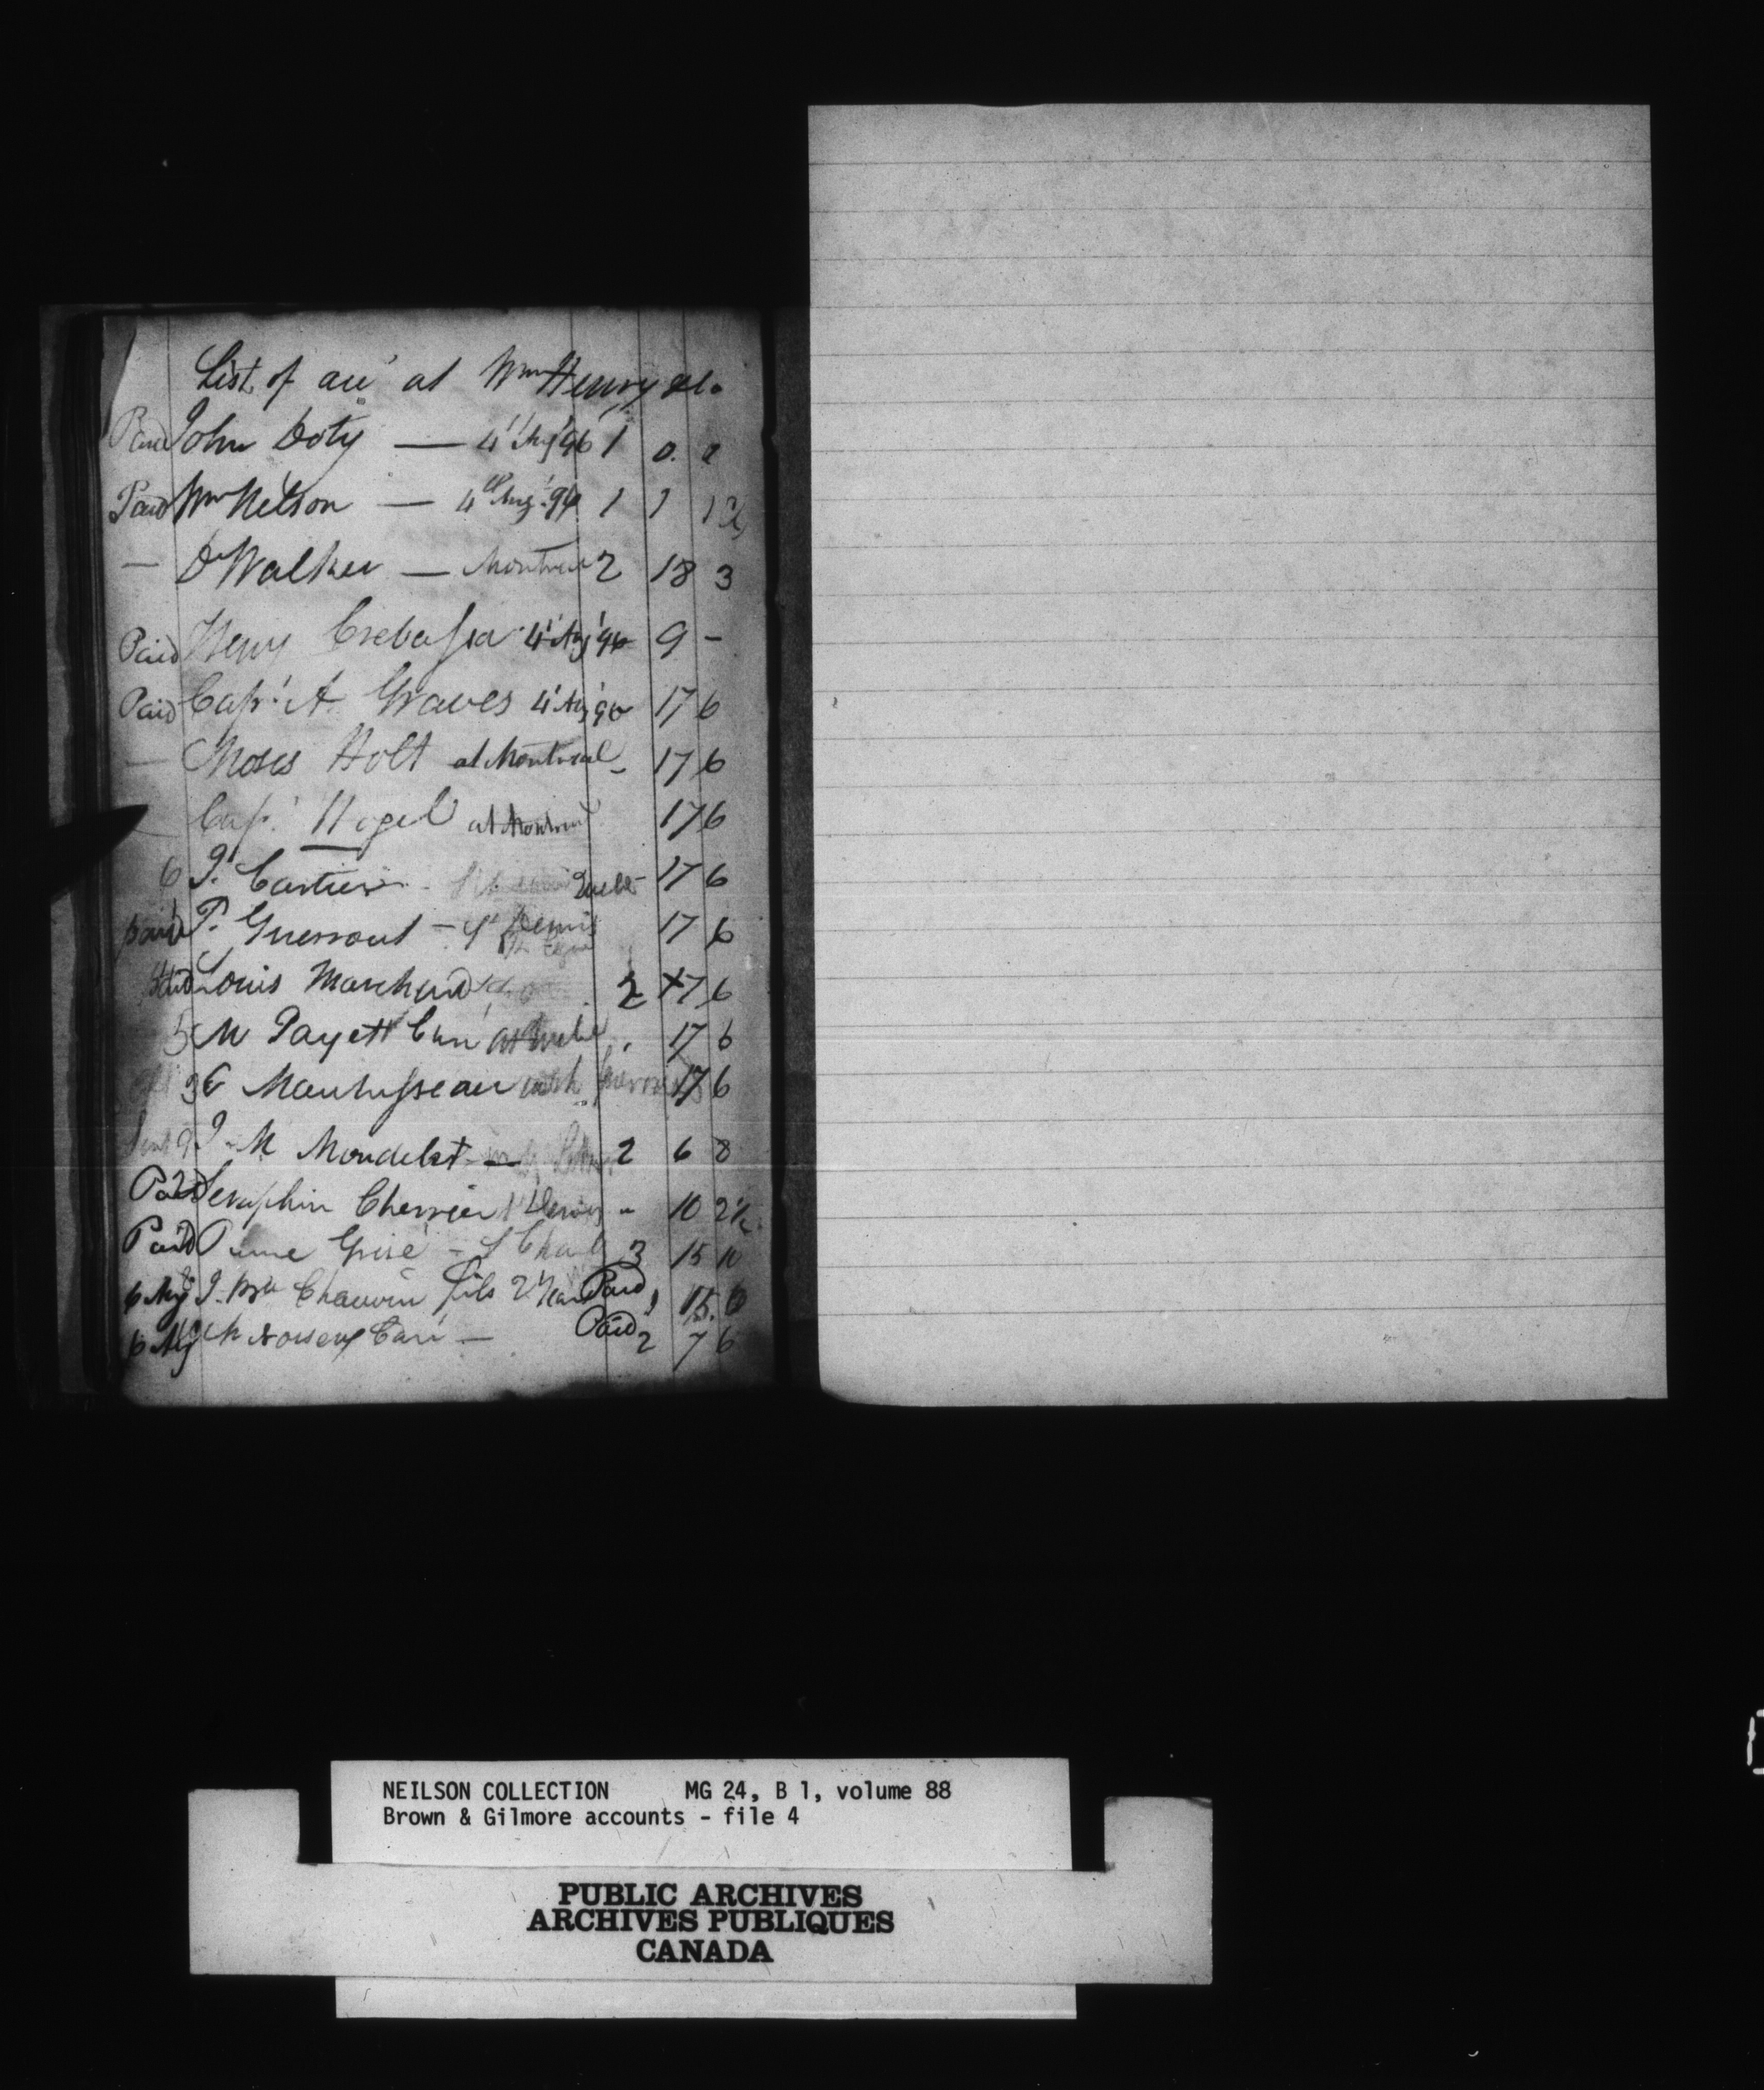 List of acc.t at Wm Henry &c.
Paid John Doty — 4 Aug 96 1 0. 2
Paid Wm Nelson — 4th Aug. 96 1 1 1½
— Dr Walker — Montreal 2 18 3
Paid Henry Crebassa 4 Aug 96 9 -
Paid Capt. A Graves 4 Aug 96 17 6
— Moses Holt at Montreal - 17 6
— Capt. Hogel at Montreal 17 6
6 J. Cartier - Quebe 17 6
paid P. Guerout - St Denis 17 6
paid Louis Marchand 2 17 6
5 M Payett Curé at 17 6
3 C Mauhisseau with Guerout 17 6
9 J - M Mondelet — 2 6 8
Paid Seraphin Cherrier St Denis - 10 2½
Paid Pierre Grisé - St Charls 3 15 10
6 Aug J. Bte Chauvin fils 2 Years Paid 1 15. 0
6 Aug M Noiseux Curé — Paid 2 7 6
NEILSON COLLECTION MG 24, B 1, volume 88
Brown & Gilmore accounts - file 4
PUBLIC ARCHIVES
ARCHIVES PUBLIQUES
CANADA